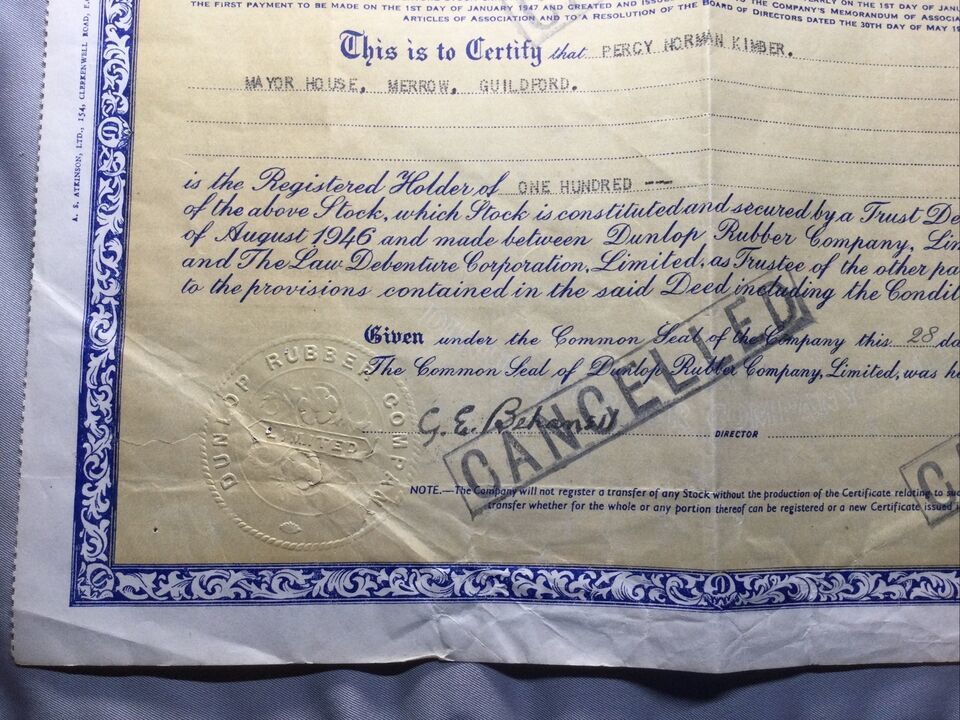 THE FIRST PAYMENT TO BE MADE ON THE 1ST DAY OF JANUARY 1947 AND CREATED AND ISSUED TO THE COMPANY'S MEMORANDUM OF ASSOCIA
ARTICLES OF ASSOCIATION AND TO A RESOLUTION OF THE BOARD OF DIRECTORS DATED THE 30TH DAY OF MAY 19
This is to Certify that PERCY NORMAN KIMBER.
MAYOR HOUSE, MERROW, GUILDFORD.
is the Registered Holder of ONE HUNDRED --
of the above Stock, which Stock is constituted and secured by a Trust De
of August 1946 and made between Dunlop Rubber Company, Lim
and The Law Debenture Corporation, Limited, as Trustee of the other pa
to the provisions contained in the said Deed including the Condit
Given under the Common Seal of the Company this 28 da
The Common Seal of Dunlop Rubber Company, Limited, was he
G. E.
DIRECTOR
CANCELLED
CA
NOTE.—The Company will not register a transfer of any Stock without the production of the Certificate relating to suc
transfer whether for the whole or any portion thereof can be registered or a new Certificate issued i
DUNLOP RUBBER COMPANY
LIMITED
A. S. ATKINSON, LTD., 154, CLERKENWELL ROAD, E.